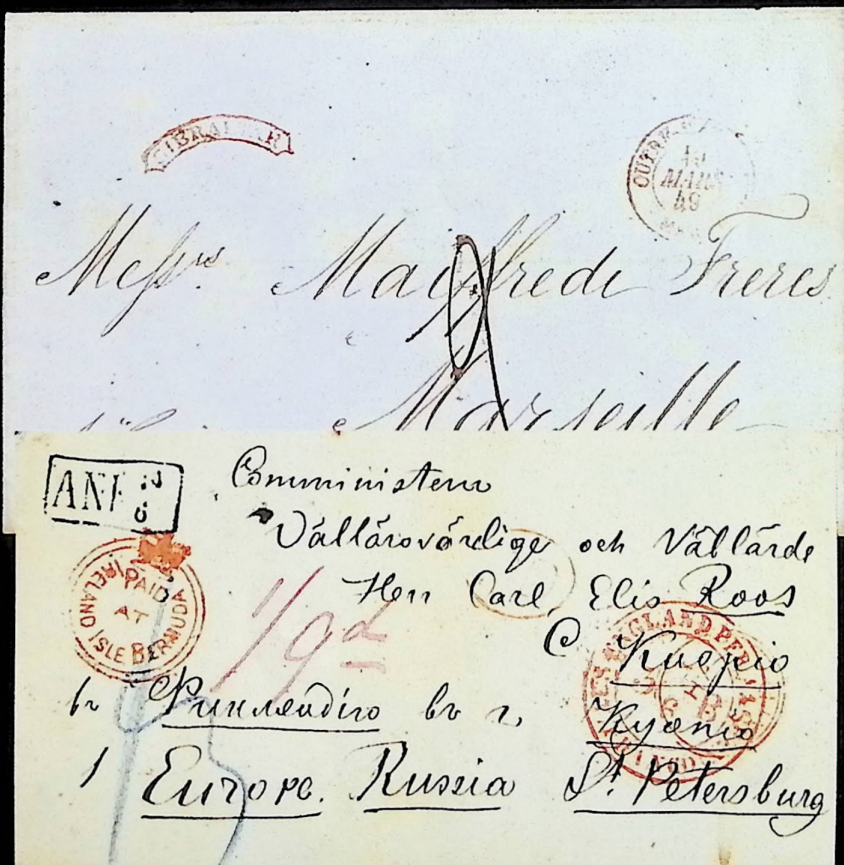 GIBRALTAR
OUTRE-M
15
MARS
49
Messrs Maiffredi Freres
Marseille
ANK
Comministern
Vällärovördige och Vällärde
Herr Carl Elis Roos
PAID
AT
IRELAND ISLE BERMUDA
1/9d
C Kuopio
въ Финляндію въ г. Куопіо
ENGLAND PER
1 Europe. Russia St. Petersburg